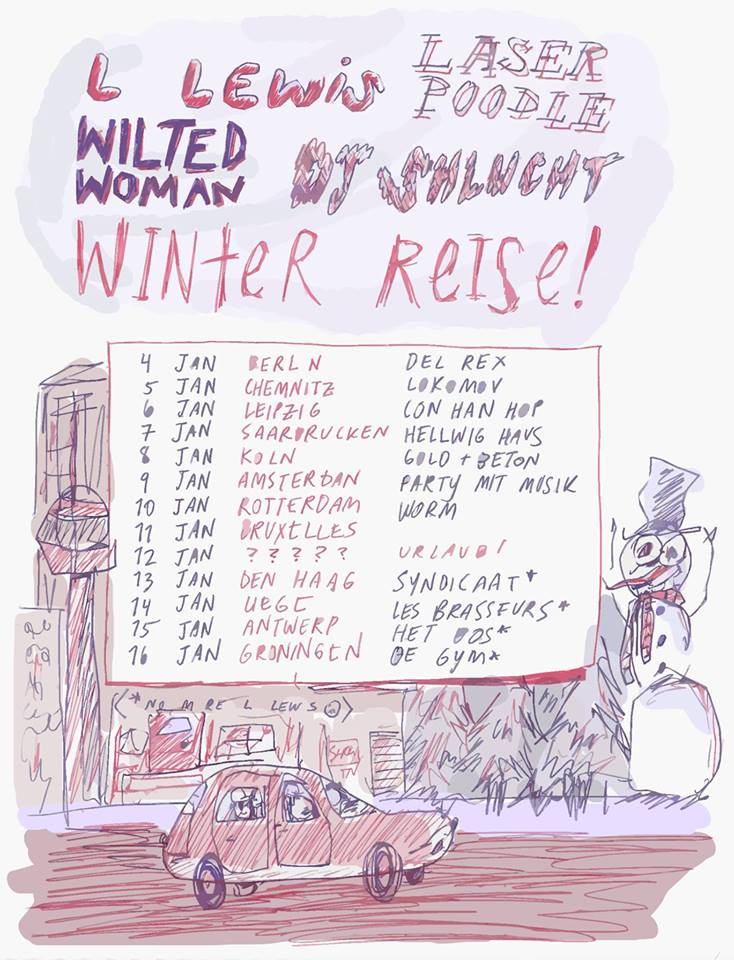 L LEWiS
LASER
POODLE
WILTED
WOMAN
DJ SHLUCHT
WINteR ReISe!
4 JAN BERLIN DEL REX
5 JAN CHEMNITZ LOKOMOV
6 JAN LEIPZIG CON HAN HOP
7 JAN SAARBRUCKEN HELLWIG HAUS
8 JAN KOLN GOLD + BETON
9 JAN AMSTERDAN PARTY MIT MUSIK
10 JAN ROTTERDAM WORM
11 JAN BRUXELLES
12 JAN ? ? ? ? ? URLAUB!
13 JAN DEN HAAG SYNDICAAT*
14 JAN LIEGE LES BRASSEURS*
15 JAN ANTWERP HET BOS*
16 JAN GRONINGEN DE GYM*
(*NO MORE L LEWIS ☹)